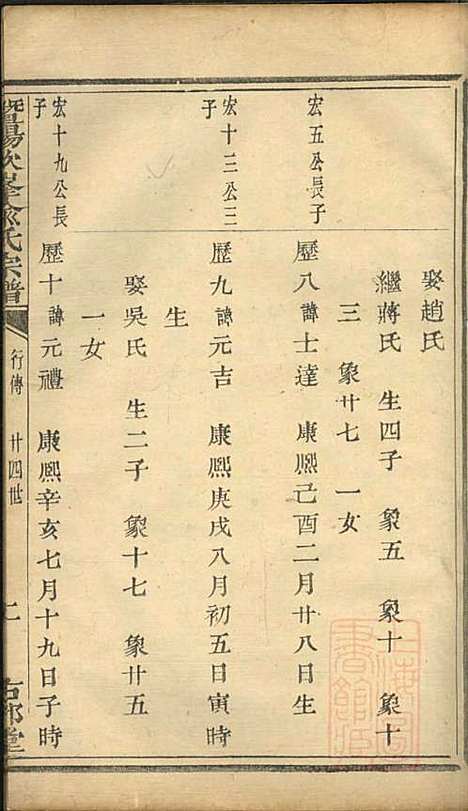 娶趙氏
繼蔣氏 生四子 象五 象十 象十
三 象廿七 一女
宏五公長子
歷八諱士達 康熙己酉二月廿八日生
宏十三公三
子
歷九諱元吉 康熙庚戌八月初五日寅時
生
娶吳氏 生二子 象十七 象廿五
一女
宏十九公長
子
歷十諱元禮 康熙辛亥七月十九日子時
暨陽次峯俞氏宗譜
行傳 廿四世
二
右郊堂
上海
書館